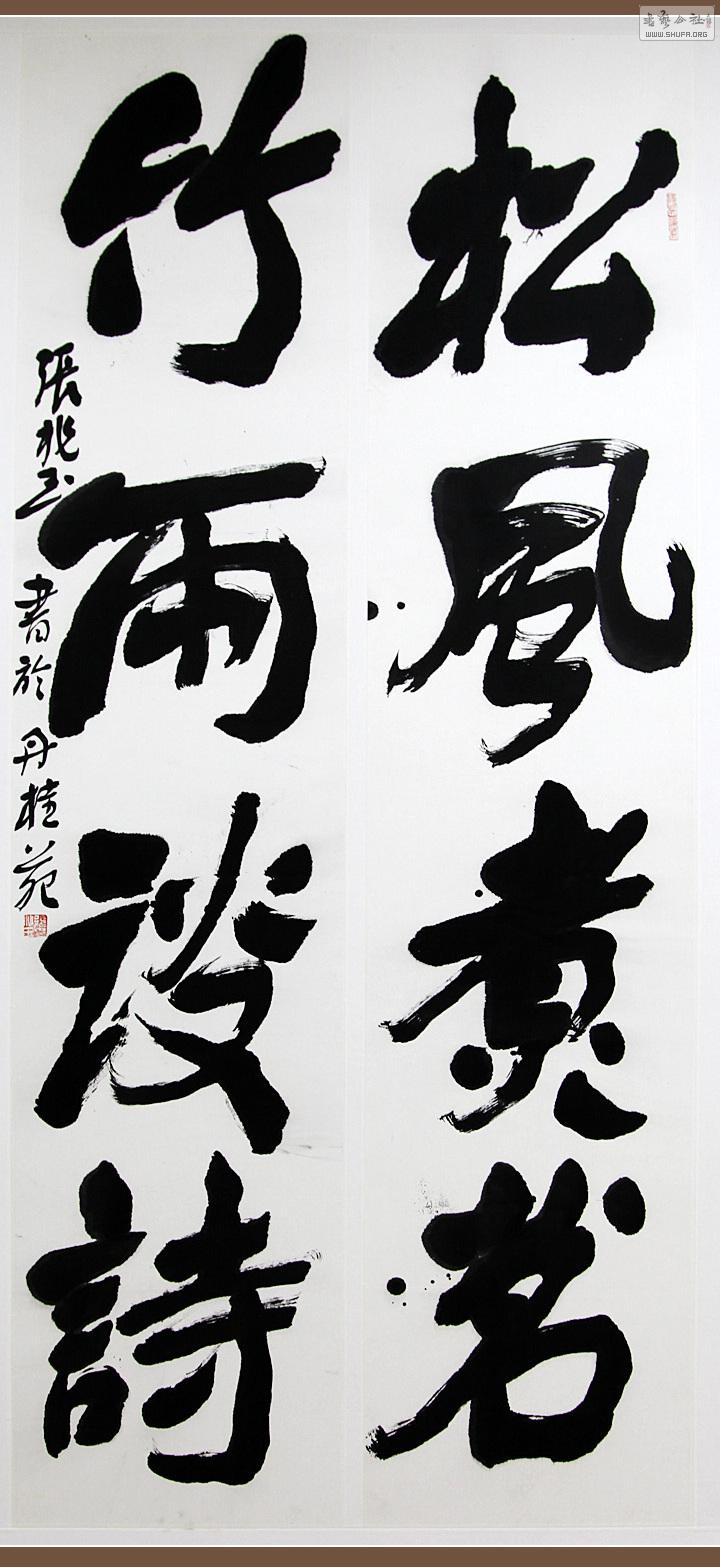 松風煮茗
竹雨談詩
張兆玉書於丹桂苑
書藝公社
WWW.SHUFA.ORG